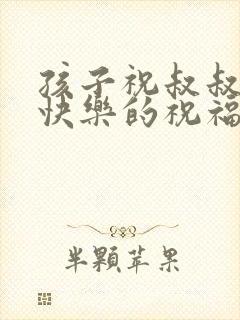 孩子祝叔叔
快樂的祝福
半顆苹果